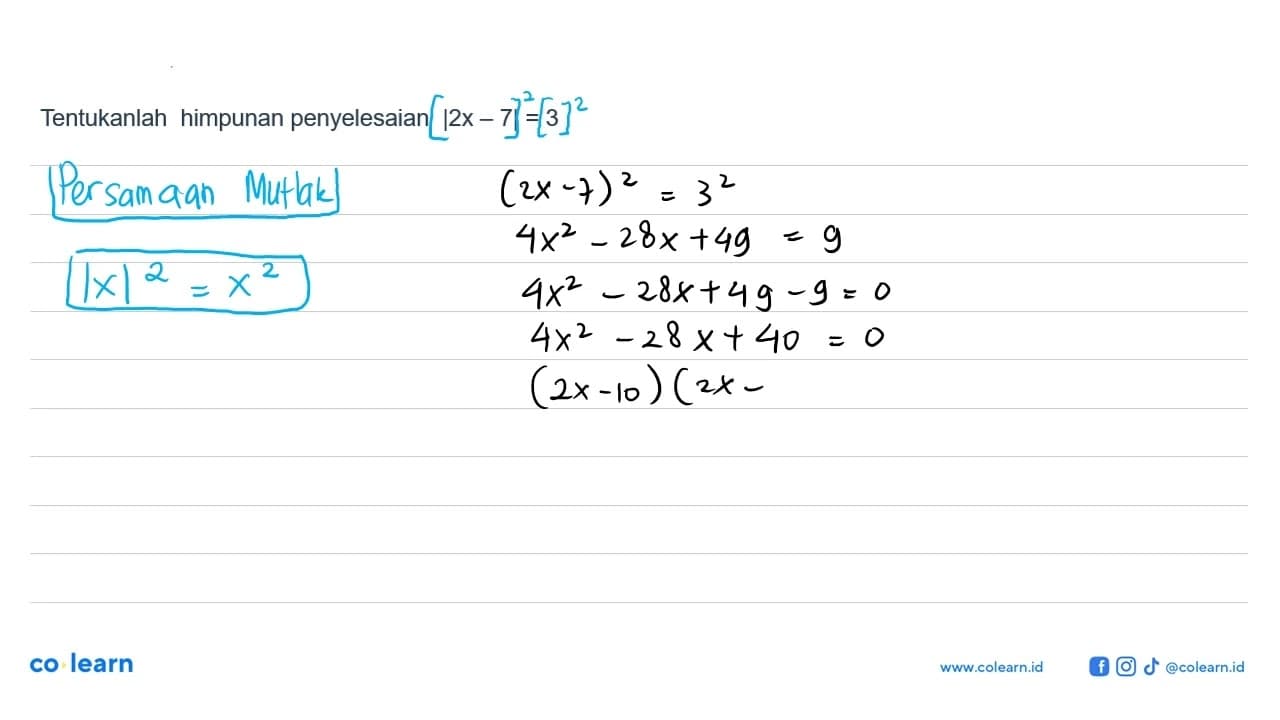 Tentukanlah himpunan penyelesaian [|2x – 7|]² = [3]²
Persamaan Mutlak
|x|² = x²
(2x - 7)² = 3²
4x² - 28x + 49 = 9
4x² - 28x + 49 - 9 = 0
4x² - 28x + 40 = 0
(2x - 10) (2x -
co·learn
www.colearn.id
@colearn.id